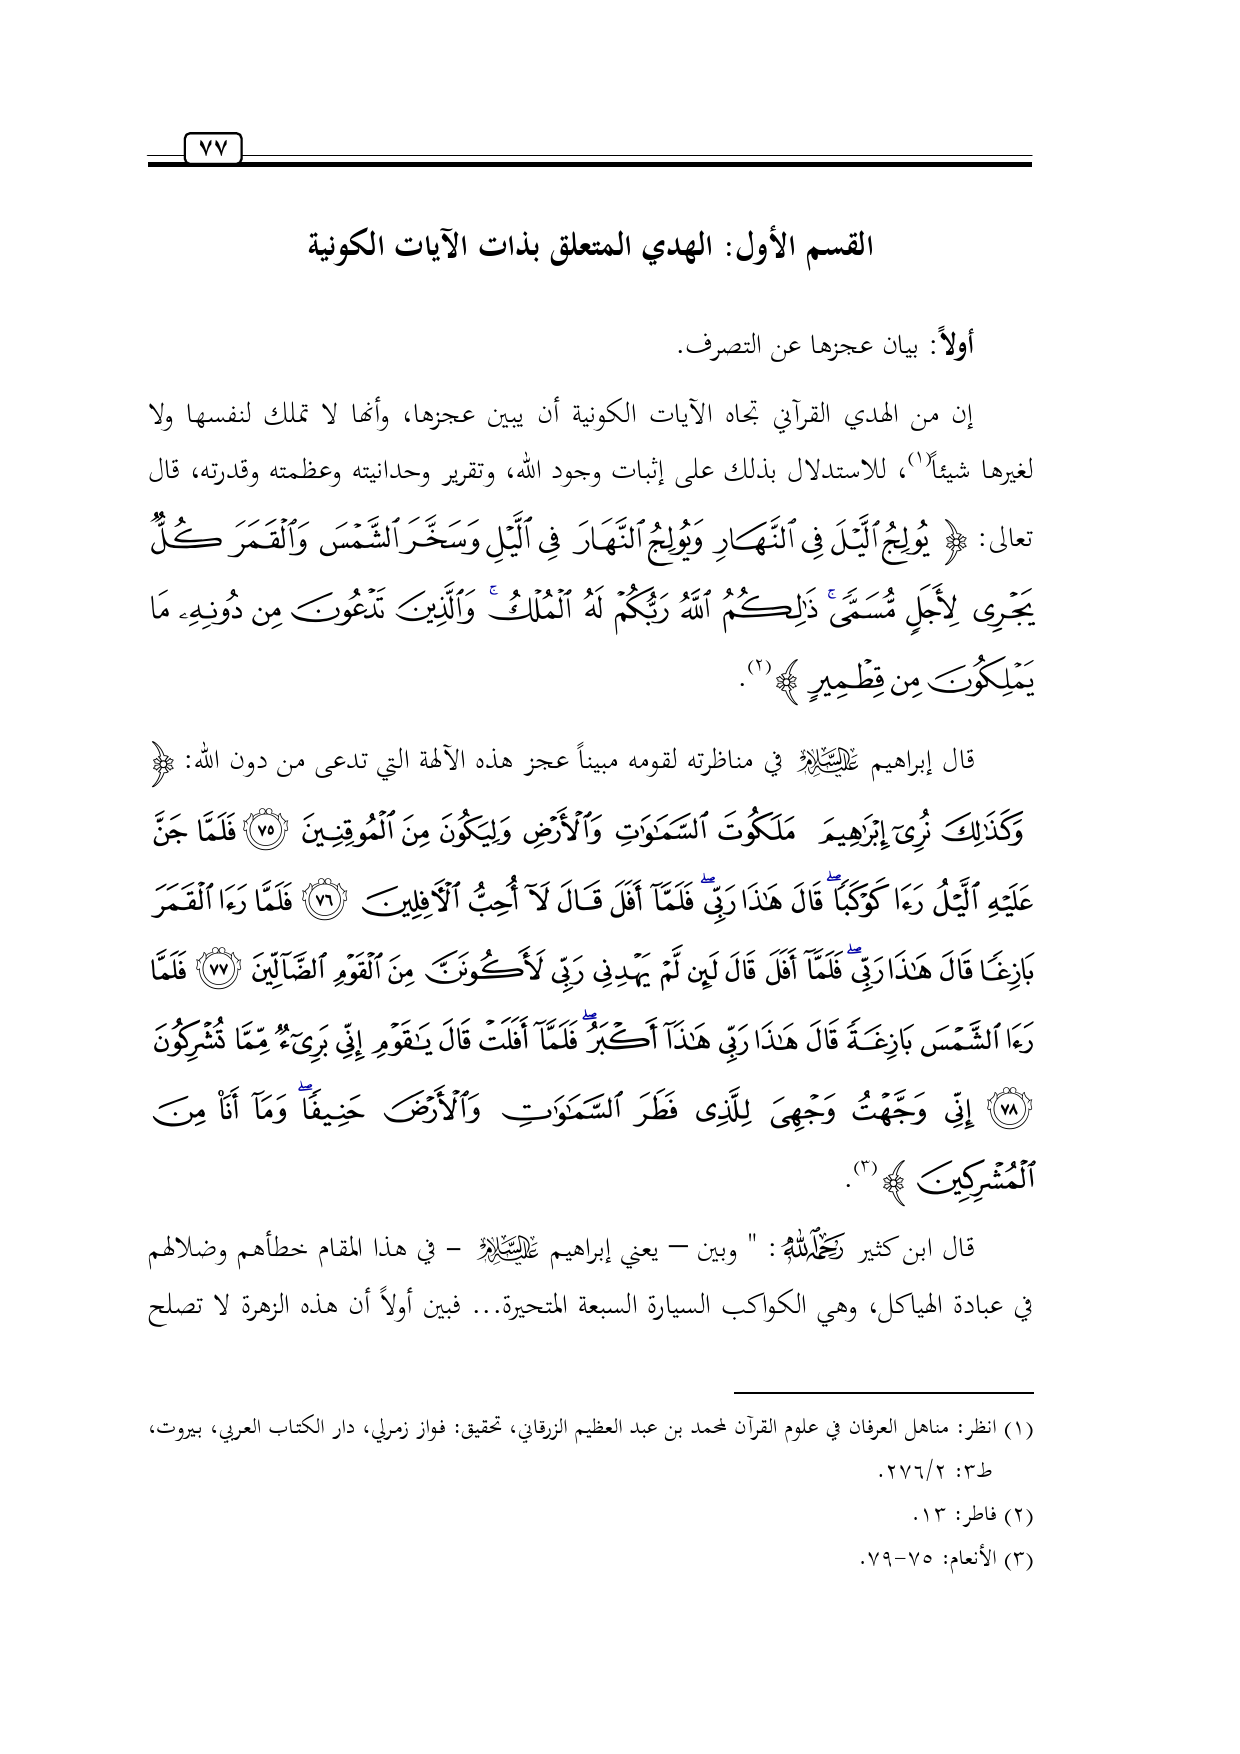 ٧٧
القسم الأول: الهدي المتعلق بذات الآيات الكونية
أولاً: بيان عجزها عن التصرف.
إن من الهدي القرآني تجاه الآيات الكونية أن يبين عجزها، وأنها لا تملك لنفسها ولا
لغيرها شيئاً(١)، للاستدلال بذلك على إثبات وجود الله، وتقرير وحدانيته وعظمته وقدرته، قال
تعالى: ﴿ يُولِجُ ٱلَّيْلَ فِى ٱلنَّهَارِ وَيُولِجُ ٱلنَّهَارَ فِى ٱلَّيْلِ وَسَخَّرَ ٱلشَّمْسَ وَٱلْقَمَرَ كُلٌّ
يَجْرِى لِأَجَلٍ مُّسَمًّى ۚ ذَٰلِكُمُ ٱللَّهُ رَبُّكُمْ لَهُ ٱلْمُلْكُ ۚ وَٱلَّذِينَ تَدْعُونَ مِن دُونِهِۦ مَا
يَمْلِكُونَ مِن قِطْمِيرٍ ﴾(٢).
قال إبراهيم عليه السلام في مناظرته لقومه مبيناً عجز هذه الآلهة التي تدعى من دون الله: ﴿
وَكَذَٰلِكَ نُرِىٓ إِبْرَٰهِيمَ مَلَكُوتَ ٱلسَّمَٰوَٰتِ وَٱلْأَرْضِ وَلِيَكُونَ مِنَ ٱلْمُوقِنِينَ ٧٥ فَلَمَّا جَنَّ
عَلَيْهِ ٱلَّيْلُ رَءَا كَوْكَبًا ۖ قَالَ هَٰذَا رَبِّى ۖ فَلَمَّآ أَفَلَ قَالَ لَآ أُحِبُّ ٱلْءَافِلِينَ ٧٦ فَلَمَّا رَءَا ٱلْقَمَرَ
بَازِغًا قَالَ هَٰذَا رَبِّى ۖ فَلَمَّآ أَفَلَ قَالَ لَئِن لَّمْ يَهْدِنِى رَبِّى لَأَكُونَنَّ مِنَ ٱلْقَوْمِ ٱلضَّآلِّينَ ٧٧ فَلَمَّا
رَءَا ٱلشَّمْسَ بَازِغَةً قَالَ هَٰذَا رَبِّى هَٰذَآ أَكْبَرُ ۖ فَلَمَّآ أَفَلَتْ قَالَ يَٰقَوْمِ إِنِّى بَرِىٓءٌ مِّمَّا تُشْرِكُونَ
٧٨ إِنِّى وَجَّهْتُ وَجْهِىَ لِلَّذِى فَطَرَ ٱلسَّمَٰوَٰتِ وَٱلْأَرْضَ حَنِيفًا ۖ وَمَآ أَنَا۠ مِنَ
ٱلْمُشْرِكِينَ ﴾(٣).
قال ابن كثير رحمه الله: " وبين – يعني إبراهيم عليه السلام – في هذا المقام خطأهم وضلالهم
في عبادة الهياكل، وهي الكواكب السيارة السبعة المتحيرة... فبين أولاً أن هذه الزهرة لا تصلح
(١) انظر: مناهل العرفان في علوم القرآن لمحمد بن عبد العظيم الزرقاني، تحقيق: فواز زمرلي، دار الكتاب العربي، بيروت،
ط٣: ٢٧٦/٢.
(٢) فاطر: ١٣.
(٣) الأنعام: ٧٥-٧٩.